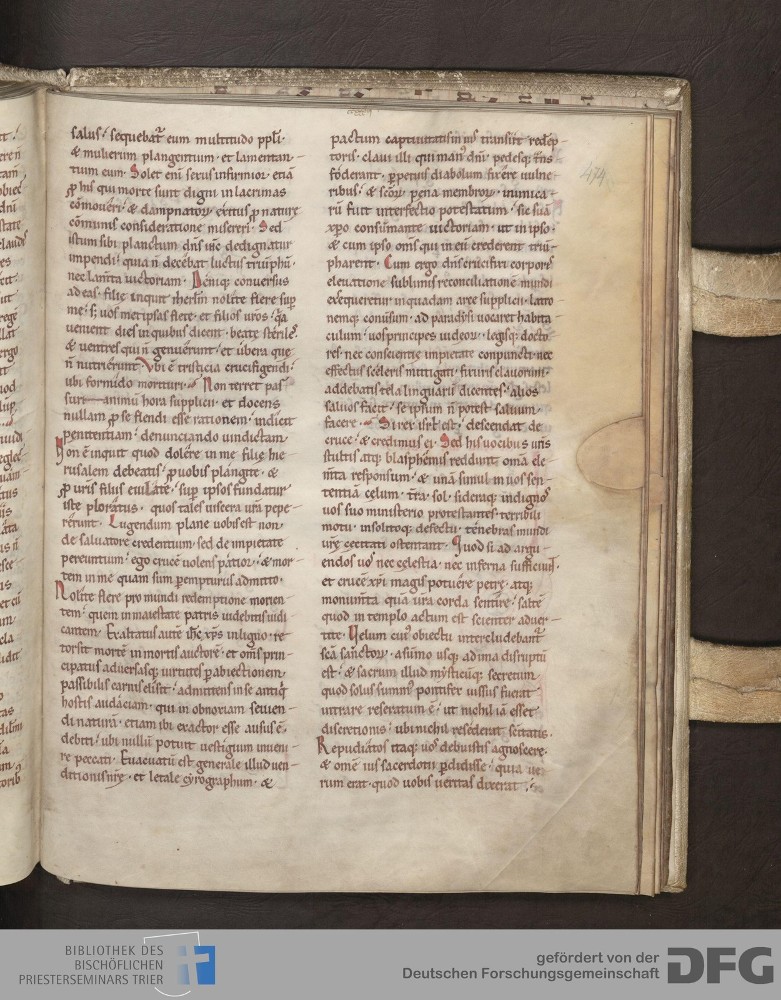 salus; sequebat̃ eum multitudo ppl̃i
& mulierum plangentium · et lamentan-
tium eum · Solet eni seruis infirmior · etiã
ꝓ his qui morte sunt digni in lacrimas
cõmoueri · & dampnatoꝝ exitus ꝓ naturę
cõmunis consideratione misereri · Sed
istum sibi planctum dñs ihc dedignatur
impendi · quia ñ decebat luctus triũphũ ·
nec lam̃ta uictoriam · Deniq; conuersus
ad eas · filię inquit ihrl̃m nolite flere sup
me · s; uos met ipsas flete · et filios ur̃os · q̃a
uenient dies in quibus dicent · beatę steriles ·
& uentres qui ñ genuerunt · et ubera quę
ñ nutrierunt · Vbi ẽ tristicia crucifigendi ·
ubi formido morituri · Non terret pas
suri animũ hora supplicii · et docens
nullam ꝓ se flendi esse rationem · indicit
penitentiam · denunciando uindictam ·
Non ẽ inquit quod dolere in me filię hie
rusalem debeatis · ꝓ uobis plangite · &
ꝓ ur̃is filius eiulate · sup ipsos fundatur
iste ploratus · quos tales uiscera ur̃a pepe-
rerunt · Lugendum plane uobis est non
de saluatore credentium · sed de impietate
pereuntium · ego crucẽ uolens patior · & mor-
tem in me quam sum perempturus admitto ·
Nolite flere pro mundi redemptione morien-
tem · quem in maiestate patris uidebitis iudi
cantem · Exaltatus aute ihc xp̃s in ligno · re
torsit mortẽ in mortis auctorẽ · et om̃s prin-
cipatus aduersasq; uirtutes p abiectionem
passibilis carnis elisit · admittens in se antiq̃
hostis audaciam · qui in obnoxiam seuien-
di naturã · etiam ibi exactor esse ausus ẽ ·
debiti · ubi nullũ potuit uestigium inueni-
re peccati · Euacuatũ est generale illud uen-
ditionis nr̃ę · et letale cyrographum · &
pactum captiuitatis in ius transiit redẽp-
toris · claui illi qui man' dñi pedesq; tñs
foderant · ppetuis diabolum fixere uulne-
ribus · & sc̃oꝝ pena membroꝝ · inimica-
rũ fuit interfectio potestatum · sic suã
xp̃o consũmante uictoriam · ut in ipso ·
& cum ipso om̃s qui in eũ crederent triũ-
pharent · Cum ergo dñs crucifixi corporis
eleuatione sublimis reconciliationẽ mundi
exequeretur in quadam arce supplicii · latro
nemq; conuersum · ad paradysi uocaret habita-
culum · uos principes iudeoꝝ · legisq; docto-
res · nec conscientię impietate compuncti · nec
effectus sceleris mitigati · fixuris clauorum ·
addebatis tela linguarũ dicentes · alios
saluos facit · se ipsum ñ potest saluum
facere · Si rex isrl̃ est · descendat de
cruce · & credimus ei · Sed his uocibus ur̃is
stultis atq; blasphemis reddunt om̃ia ele-
m̃ta responsum · & unã simul in uos sen-
tentiã cęlum · t̃ra · sol · sideraq; indigno's
uos suo ministerio protestantes · terribili
motu · insolitoq; defectu · tenebras mundi
ur̃ę cęcitati ostentant · Quod si ad argu-
endos uos nec cęlestia · nec inferna sufficiunt ·
et crucẽ xp̃i magis potuere petrę · atq;
monum̃ta quã ur̃a corda sentire · saltẽ
quod in templo actum est scienter aduer-
tite · Velum cui' obiectu intercludebant̃
sc̃a sanctoꝝ · asũmo usq; ad ima disruptũ
est · & sacrum illud mysticũq; secretum
quod solus summ' pontifex iussus fuerat
intrare reseratum ẽ · ut nichil iã esset
discretionis · ubi nichil resederat sc̃itatis ·
Repudiatos itaq; uos debuistis agnoscere ·
& omẽ ius sacerdotii pdidisse · quia ue
rum erat · quod uobis ueritas dixerat ·
474
BIBLIOTHEK DES
BISCHÖFLICHEN
PRIESTERSEMINARS TRIER
gefördert von der
Deutschen Forschungsgemeinschaft
DFG